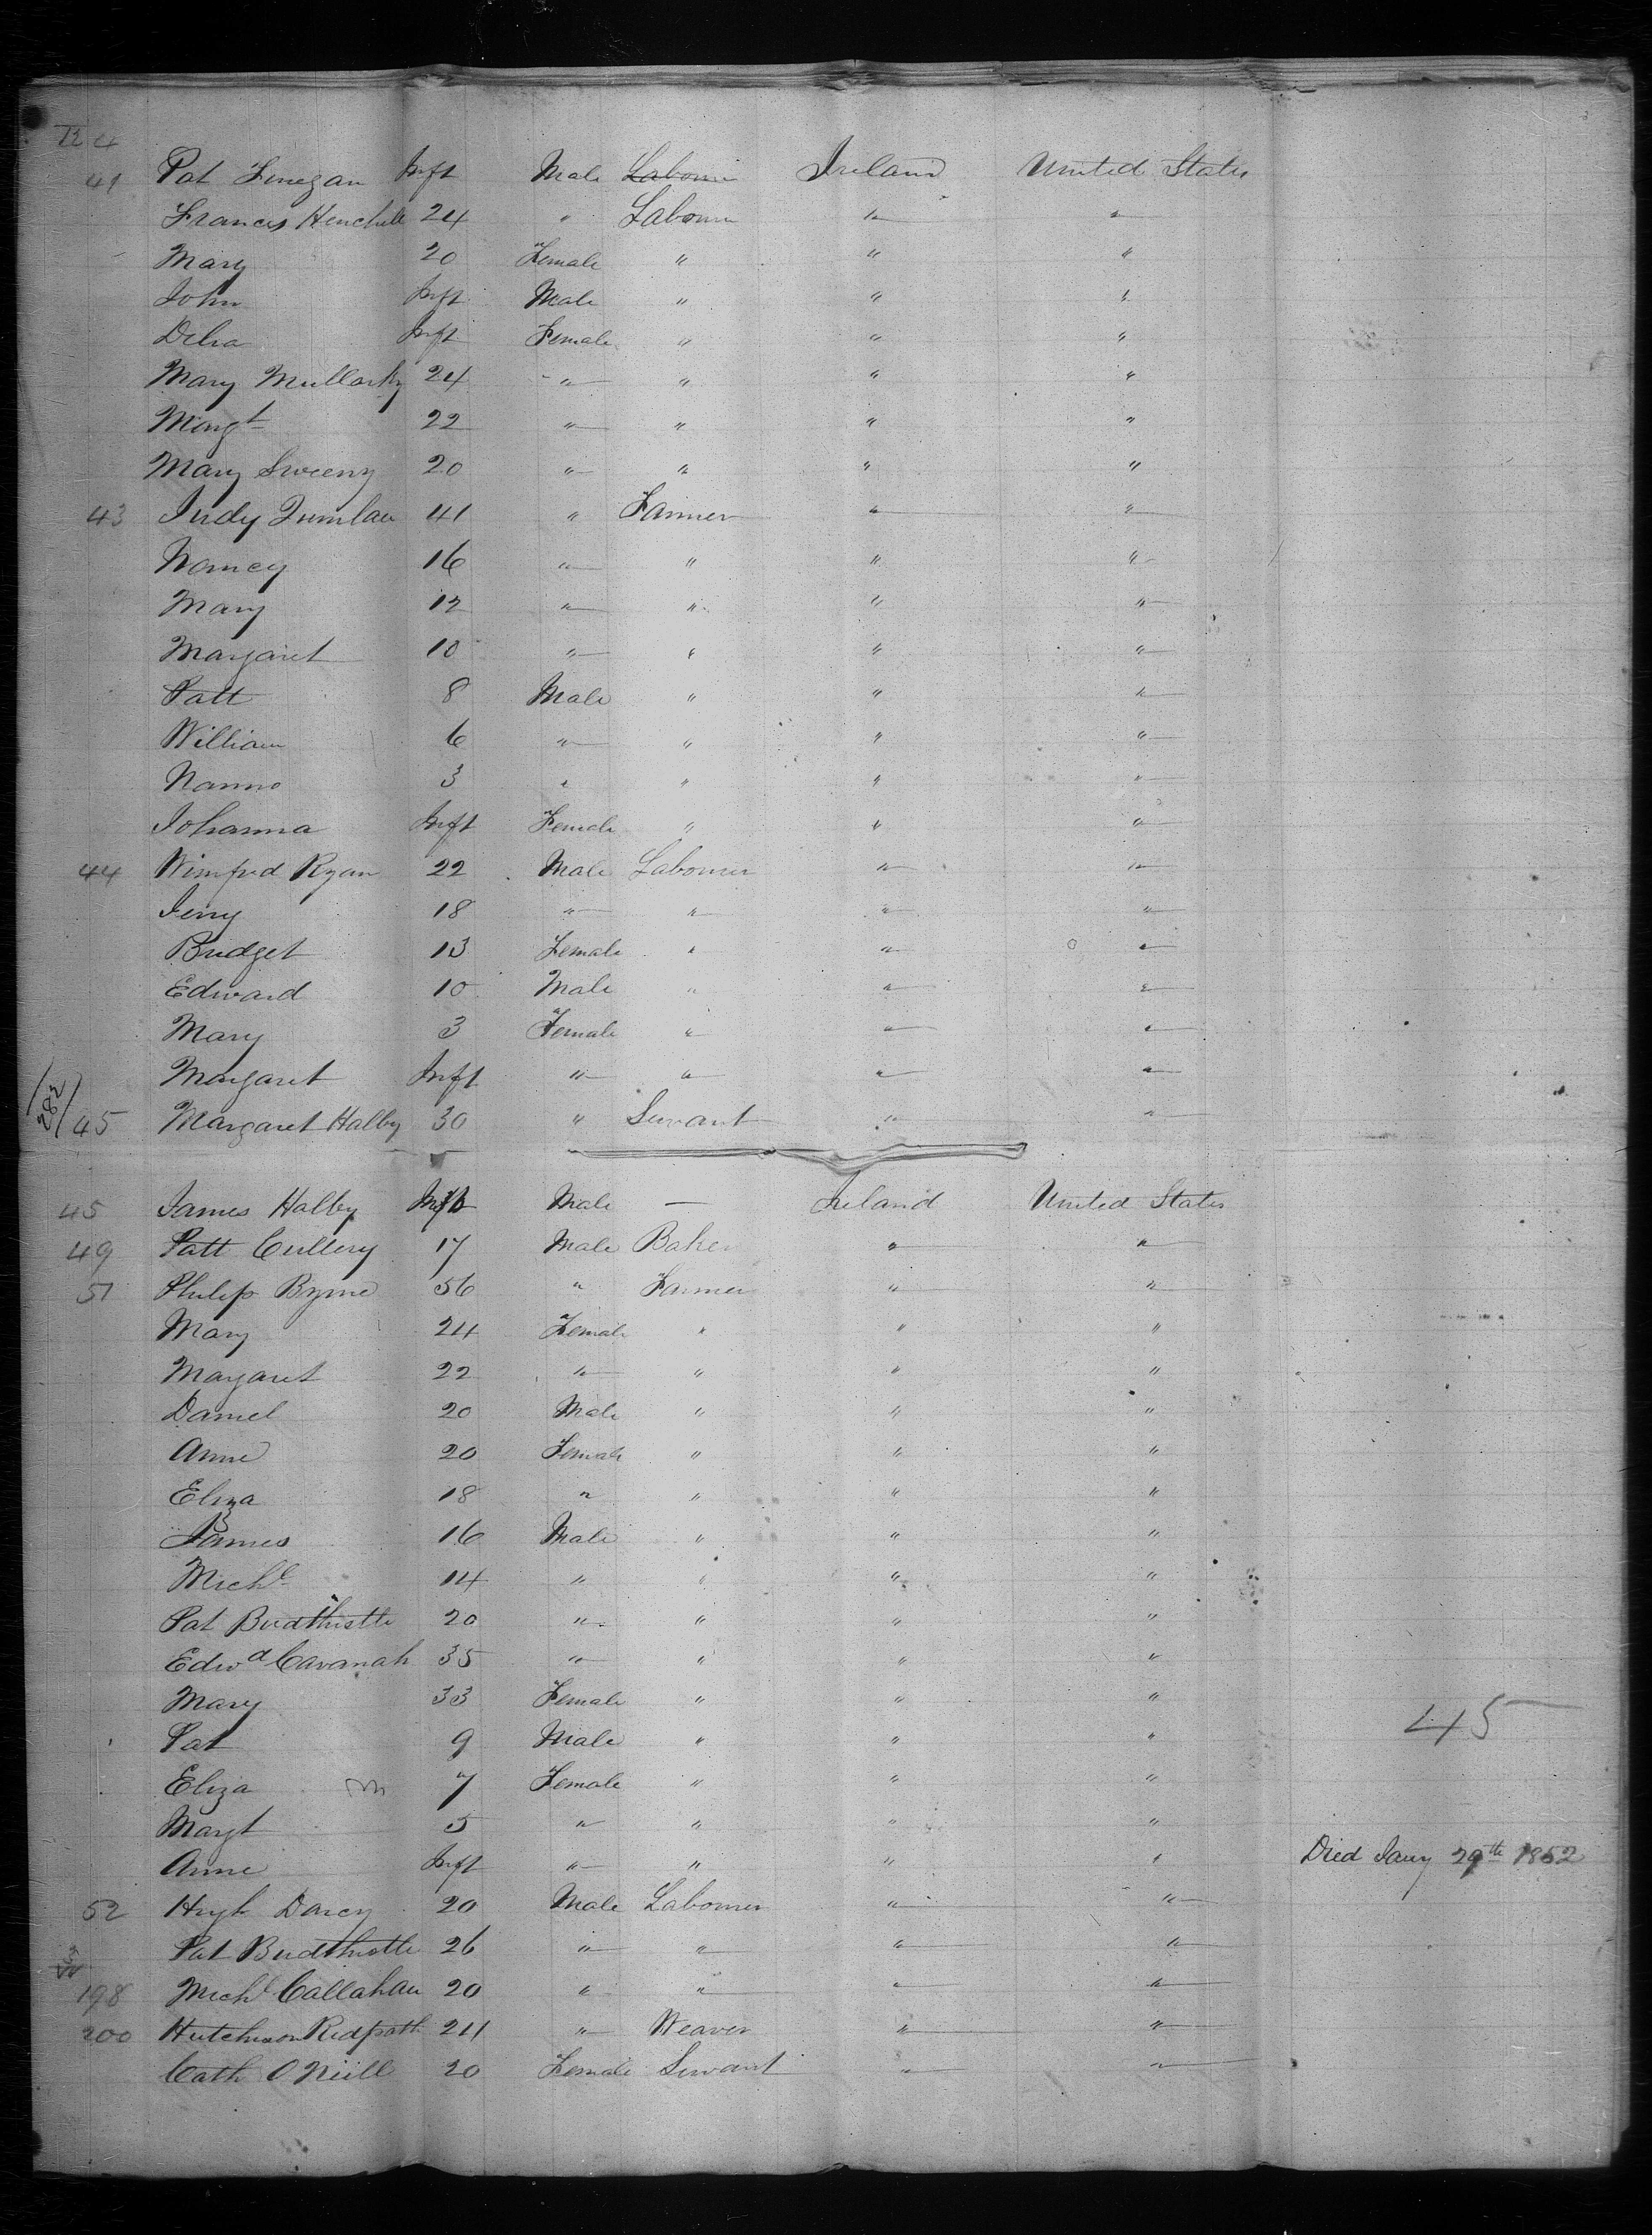 41 Pat Finegan Inft Male Labourer Ireland United States
Francis 24 " Labourer " "
Mary 20 Female " " "
John Inft Male " " "
Delia Inft Female " " "
Mary Mullarky 24 " " " "
Margt 22 " " " "
Mary Sweeny 20 " " " "
43 Judy 41 " Farmer " "
Nancy 16 " " " "
Mary 12 " " " "
Margaret 10 " " " "
Patt 8 Male " " "
William 6 " " " "
3 " " " "
Johanna Inft Female " " "
44 Winifred Ryan 22 Male Labourer " "
Jerry 18 " " " "
Bridget 13 Female " " "
Edward 10 Male " " "
Mary 3 Female " " "
Margaret Inft " " " "
282
45 Margaret Halby 30 " Servant " "
45 James Halby Inft Male — Ireland United States
49 Patt Cullery 17 Male Baker " "
51 Philip Byrne 56 " Farmer " "
Mary 24 Female " " "
Margaret 22 " " " "
Daniel 20 Male " " "
Anne 20 Female " " "
Eliza 18 " " " "
James 16 Male " " "
Michl 14 " " " "
Pat Birdthistle 20 " " " "
Edwd Cavanah 35 " " " "
Mary 33 Female " " "
Pat 9 Male " " "
45
Eliza 7 Female " " "
Margt 5 " " " "
Anne Inft " " " " Died Jany 29th 1852
52 Hugh Darcy 20 Male Labourer " "
Pat Birdthistle 26 " " " "
198 Michl Callahan 20 " " " "
200 Hutchison Redpath 24 " Weaver " "
Cath O Neill 20 Female Servant " "